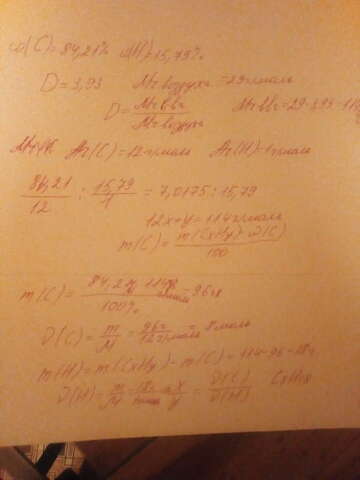 ω(C)=84,21% ω(H)=15,79%
D=3,93 Mr воздуха =29г/моль
D= Mr в-ва / Mr воздуха Mr в-ва =29·3,93=114
Ar(C)=12г/моль Ar(H)=1г/моль
84,21/12 : 15,79/1 = 7,0175:15,79
12x+y=114г/моль
m(C)= m(CxHy)·ω(C) / 100
m(C)= 84,21·114 / 100% =96г
ν(C)= m/M = 96г / 12г/моль = 8моль
m(H)=m(CxHy)-m(C)=114-96=18г
ν(H)= m/M = 18г x/y = ν(C)/ν(H) C8H18